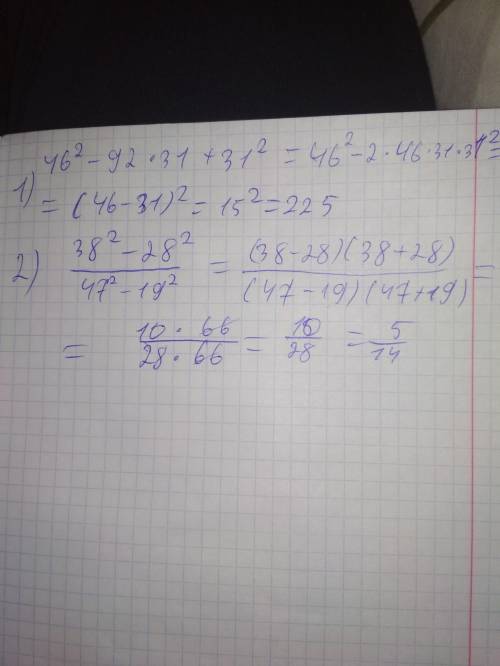 1) 46² - 92 · 31 + 31² = 46² - 2 · 46 · 31 · 31² =
= (46 - 31)² = 15² = 225
2) \frac{38² - 28²}{47² - 19²} = \frac{(38 - 28)(38 + 28)}{(47 - 19)(47 + 19)} =
= \frac{10 · 66}{28 · 66} = \frac{10}{28} = \frac{5}{14}